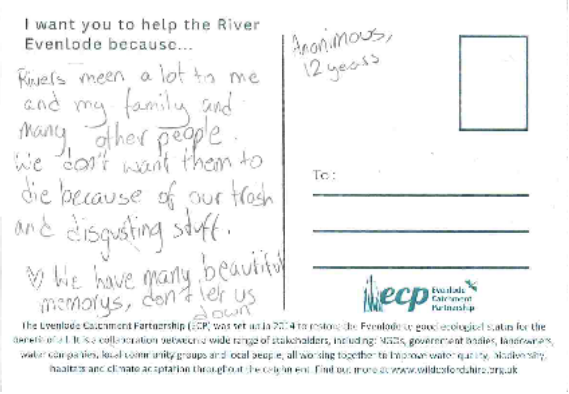 I want you to help the River
Evenlode because...
Rivers meen a lot to me
and my family and
many other people.
We don't want them to
die because of our trash
and disgusting stuff.
♡ We have many beautiful
memorys, don't let us
down
Anonimous,
12 years
To:
ecp Evenlode
Catchment
Partnership
The Evenlode Catchment Partnership (ECP) was set up in 2014 to restore the Evenlode to good ecological status for the
benefit of all. It is a collaboration between a wide range of stakeholders, including: NGOs, government bodies, landowners,
water companies, local community groups and local people, all working together to improve water quality, biodiversity,
habitats and climate adaptation throughout the catchment. Find out more at www.wildoxfordshire.org.uk